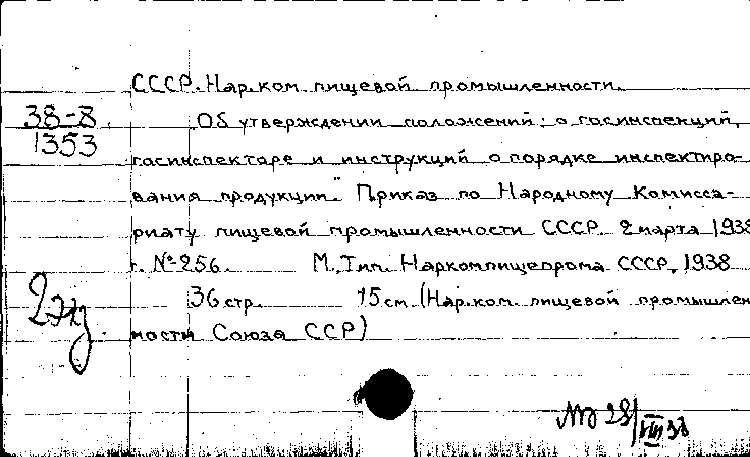 СССР. Нар.ком пищевой промышленности.
38-8
1353
Об утверждении положений: о госинспекции,
госинспекторе и инструкций о порядке инспектиро-
вания продукции". Приказ по Народному Комисса-
риату пищевой промышленности СССР. 2 марта 1938
г. № 256. М., Тип. Наркомпищепрома СССР, 1938
36 стр. 15 см. (Нар.ком. пищевой промышлен
ности Союза ССР)
2 экз.
28/VIII 38